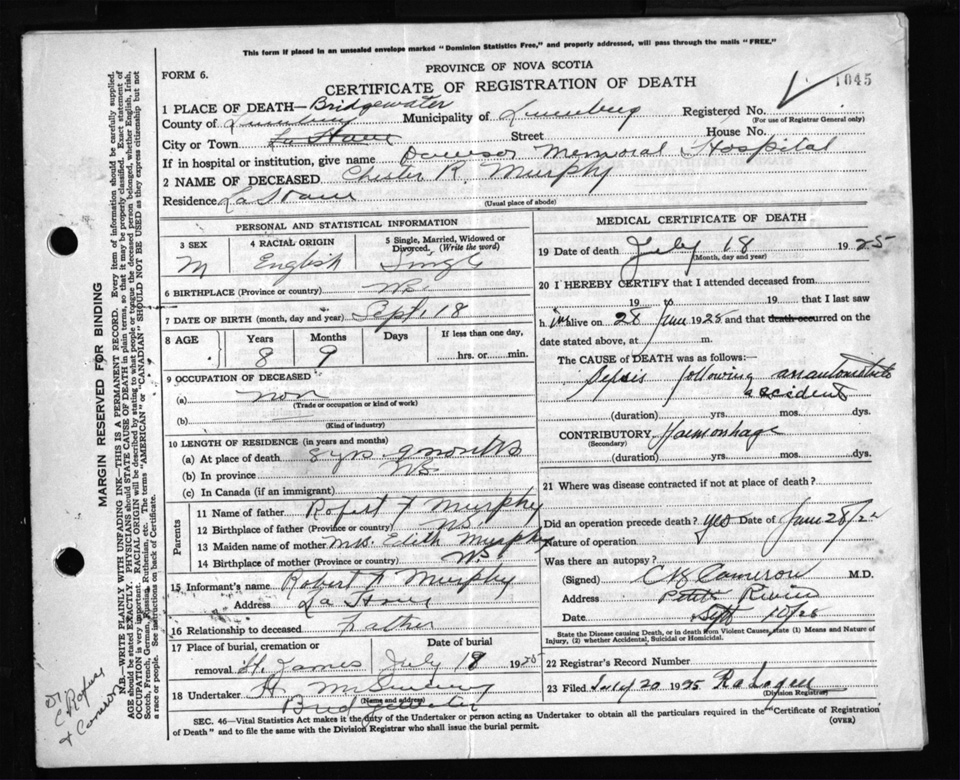 This form if placed in an unsealed envelope marked "Dominion Statistics Free," and properly addressed, will pass through the mails "FREE."
PROVINCE OF NOVA SCOTIA
FORM 6.
CERTIFICATE OF REGISTRATION OF DEATH
1045
1 PLACE OF DEATH—Bridgewater
County of Lunenburg Municipality of Lunenburg Registered No.
(For use of Registrar General only)
City or Town La Have Street House No.
If in hospital or institution, give name Dawson Memorial Hospital
2 NAME OF DECEASED Chester R. Murphy
Residence La Have
(Usual place of abode)
PERSONAL AND STATISTICAL INFORMATION
3 SEX 4 RACIAL ORIGIN 5 Single, Married, Widowed or Divorced. (Write the word)
M English Single
6 BIRTHPLACE (Province or country) N.S.
7 DATE OF BIRTH (month, day and year) Sept. 18
8 AGE Years Months Days If less than one day,
8 9 hrs. or min.
9 OCCUPATION OF DECEASED
(a) non
(Trade or occupation or kind of work)
(b)
(Kind of industry)
10 LENGTH OF RESIDENCE (in years and months)
(a) At place of death 8 yrs. 9 months
(b) In province N.S.
(c) In Canada (if an immigrant)
Parents
11 Name of father Robert F Murphy
12 Birthplace of father (Province or country) N.S.
13 Maiden name of mother Mrs. Edith Murphy
14 Birthplace of mother (Province or country) N.S.
15 Informant's name Robert F Murphy
Address La Have
16 Relationship to deceased Father
17 Place of burial, cremation or removal Date of burial
St. James July 19 1925
18 Undertaker
(Name and address)
Bridgewater
MEDICAL CERTIFICATE OF DEATH
19 Date of death July 18 1925
(Month, day and year)
20 I HEREBY CERTIFY that I attended deceased from
19 to 19 that I last saw
h im alive on 28 June 1925 and that death occurred on the
date stated above, at m.
The CAUSE of DEATH was as follows:
Sepsis following an automobile
accident
(duration) yrs. mos. dys.
CONTRIBUTORY Haemorrhage
(Secondary)
(duration) yrs. mos. dys.
21 Where was disease contracted if not at place of death?
Did an operation precede death? yes Date of June 28/25
Nature of operation
Was there an autopsy?
(Signed) Cameron M.D.
Address Petite Riviere
Date Sept 10/25
State the Disease causing Death, or in death from Violent Causes, state (1) Means and Nature of Injury, (2) whether Accidental, Suicidal or Homicidal.
22 Registrar's Record Number
23 Filed July 20 1925
(Division Registrar)
SEC. 46—Vital Statistics Act makes it the duty of the Undertaker or person acting as Undertaker to obtain all the particulars required in the "Certificate of Registration
of Death" and to file the same with the Division Registrar who shall issue the burial permit.
(OVER)
MARGIN RESERVED FOR BINDING
N.B.—WRITE PLAINLY WITH UNFADING INK—THIS IS A PERMANENT RECORD. Every item of information should be carefully supplied.
AGE should be stated EXACTLY. PHYSICIANS should STATE CAUSE OF DEATH in plain terms, so that it may be properly classified. Exact statement of
OCCUPATION is very important. RACIAL ORIGIN will be described by stating to what people or tongue the deceased person belonged, whether English, Irish,
Scotch, French, German, Russian, Ruthenian, etc. The terms "AMERICAN" or "CANADIAN" SHOULD NOT BE USED as they express citizenship but not
a race or people. See instructions on back of Certificate.